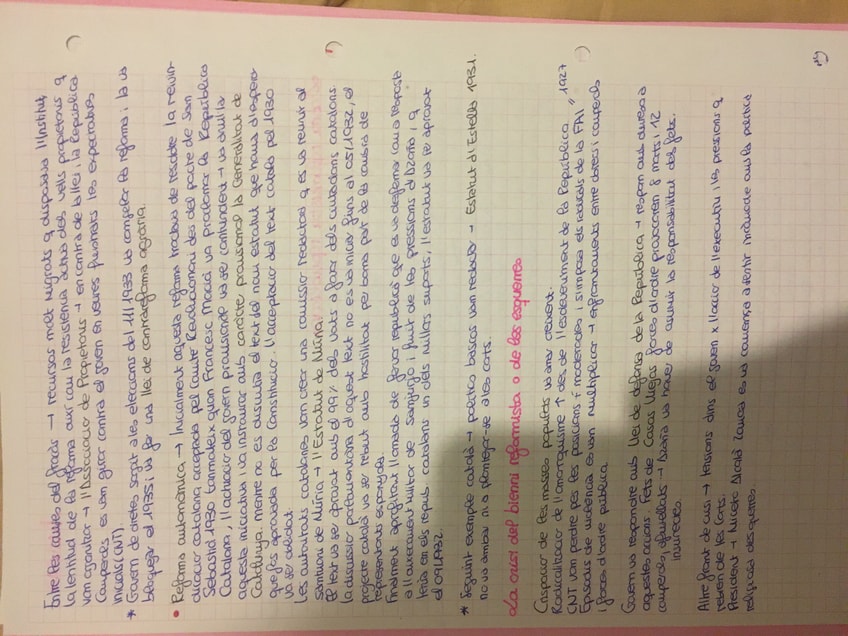 Entre les causes del fracàs → recursos molt migrats q disposava l'Institut,
la lentitud de la reforma així com la resistència activa dels vells propietaris q
van organitzar → l'Associació de Propietaris → en contra de la llei i la República
Camperols es van girar contra el govern en veures frustrats les expectatives
inicials (CNT).
* Govern de dretes sorgit a les eleccions de 1933 va congelar la reforma i la va
bloquejar el 1935 i va fer una llei de contrareforma agrària.
• Reforma autonòmica → Inicialment aquesta reforma tractava de resoldre la reivin-
dicació catalana acceptada pel Comitè Revolucionari des del pacte de San
Sebastià 1930. Tanmateix quan Francesc Macià va proclamar la República
Catalana, l'actuació del govern provisional va ser contundent → va diluir
aquesta iniciativa i va instaurar amb caràcter provisional la Generalitat de
Catalunya, mentre no es discutia el text del nou estatut que havia d'esperar
que fos aprovada per la Constitució. L'acceptació del text català pel 1930
va ser oblidat.
Les autoritats catalanes van crear una comissió redactora q es va reunir al
santuari de Núria → l'Estatut de Núria.
El text va se aprovat amb el 99% dels vots a favor dels ciutadans catalans
la discussió parlamentària d'aquest text no es va iniciar fins al 05/1932, el
projecte català va se rebut amb hostilitat per bona part de la cambra de
representants espanyola.
Finalment aprofitant l'onada de fervor republicà que es va desfermar com a resposta
a l'alçament militar de Sanjurjo i fruit de les pressions d'Azaña, q
tenia en els republicans catalans un dels millors suports, l'estatut va se aprovat
el 09/1932.
* Seguint exemple català → polítics bascos van redactar → Estatut d'Estella 1931.
no va arribar ni a plantejar-se a les corts.
La crisi del bienni reformista o de les esquerres
Crispació de les masses populars va anar creixent.
Radicalització de l'anarquisme ↑ des de l'esdeveniment de la República. 1927
CNT van perdre pes les posicions + moderades i s'imposa els radicals de la FAI
Episodis de violència es van multiplicar → enfrontaments entre obrers i camperols
i forces d'ordre públic
Govern va respondre amb Llei de defensa de la República → respon amb duresa a
aquestes accions. Fets de Casas Viejas forces d'ordre provocaren 8 morts i 12
camperols afusellats → Azaña va haver de assumir la responsabilitat dels fets.
insurrectes.
Altre front de crisi → tensions dins el govern x l'acció de l'executiu i les pressions q
rebien de les Corts.
President → Niceto Alcalá Zamora es va començar a sentir incòmode amb la política
religiosa d esquerres.